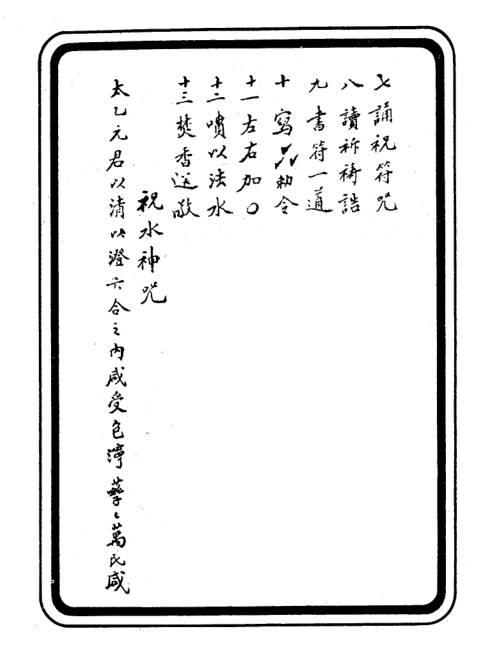 七誦祝符咒
八讀祈禱誥
九書符一道
十寫勅令
十一左右加〇
十二噴以法水
十三焚香送敬
祝水神咒
太乙元君以清以澄六合之內咸受色渟萬民咸